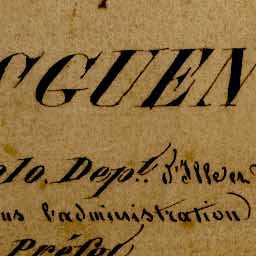 CGUEN
alo. Dep.t d'Ille et
ous l'administration
Préfet